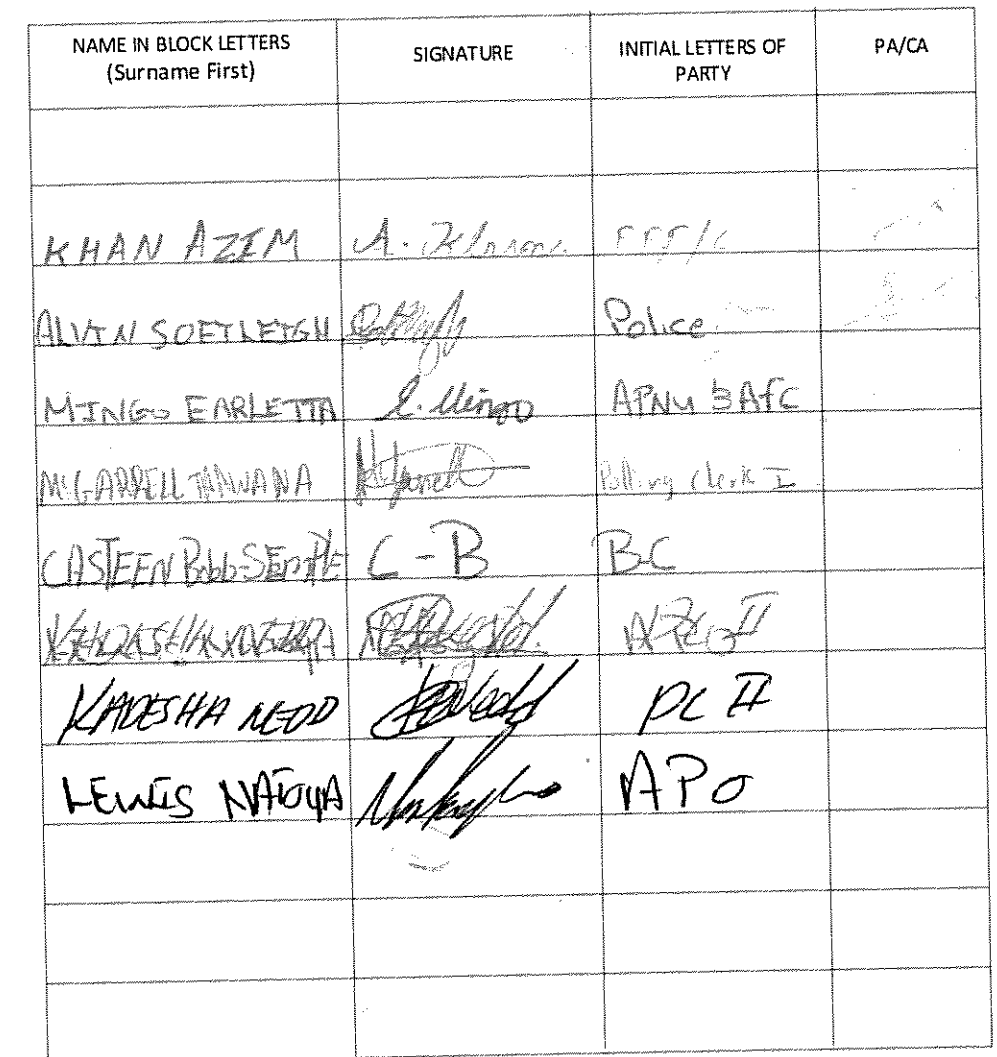 NAME IN BLOCK LETTERS SIGNATURE INITIAL LETTERS OF PA/CA
(Surname First) PARTY
KHAN AZIM A. Khan
ALVIN SOFTLEIGH Police
MINGO EARLETTA E. Mingo APNU & AFC
McGARRELL Polling Clerk I
CASTEEN Bobb-SEMPLE C-B B-C
KADESHA NEDD PC II
LEWIS NATOYA APO